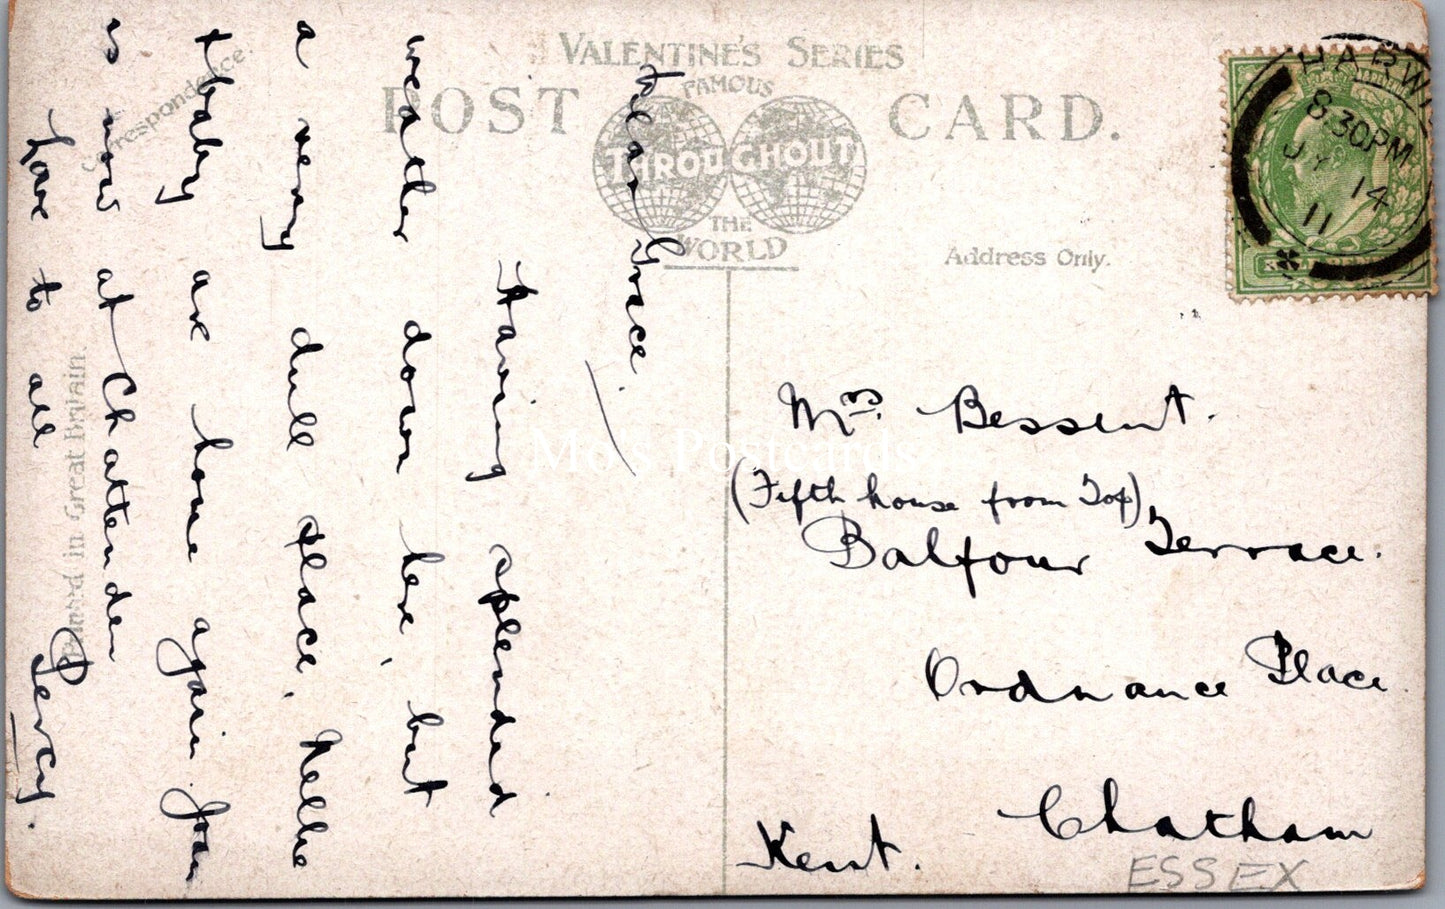 VALENTINE'S SERIES
FAMOUS
POST CARD.
THROUGHOUT
THE
WORLD
Correspondence.
Address Only.
Printed in Great Britain.
HARWIC
8.30PM
JY 14
11
Dear Grace.
Having splended
weather down here, but
a very dull place. Nellie
& baby are home again. Joan
is now at Chattenden
Love to all
Percy.
Mrs. Bessent.
(Fifth house from Top)
Balfour Terrace.
Ordnance Place
Chatham
Kent.
ESSEX
Mo's Postcards